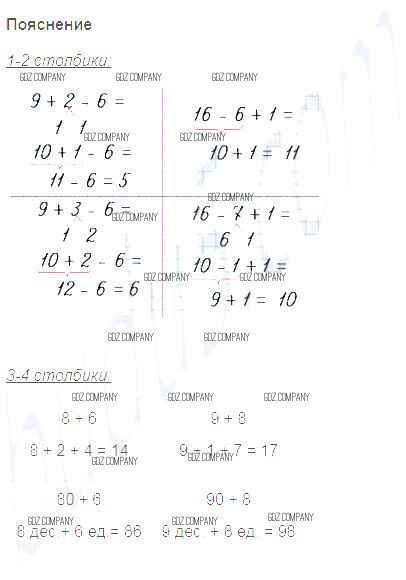 Пояснение
1-2 столбики:
GDZ.COMPANY GDZ.COMPANY GDZ.COMPANY
9 + 2 - 6 =
1 1
GDZ.COMPANY
10 + 1 - 6 =
11 - 6 = 5
16 - 6 + 1 =
GDZ.COMPANY
10 + 1 = 11
GDZ.COMPANY
9 + 3 - 6 =
GDZ.COMPANY
1 2
10 + 2 - 6 =
12 - 6 = 6
16 - 7 + 1 =
6 1
10 - 1 + 1 =
GDZ.COMPANY GDZ.COMPANY
9 + 1 = 10
GDZ.COMPANY GDZ.COMPANY
3-4 столбики:
GDZ.COMPANY GDZ.COMPANY GDZ.COMPANY
8 + 6 9 + 8
8 + 2 + 4 = 14 9 + 1 + 7 = 17
GDZ.COMPANY GDZ.COMPANY
80 + 6 90 + 8
GDZ.COMPANY GDZ.COMPANY GDZ.COMPANY
8 дес. + 6 ед.= 86 9 дес. + 8 ед. = 98